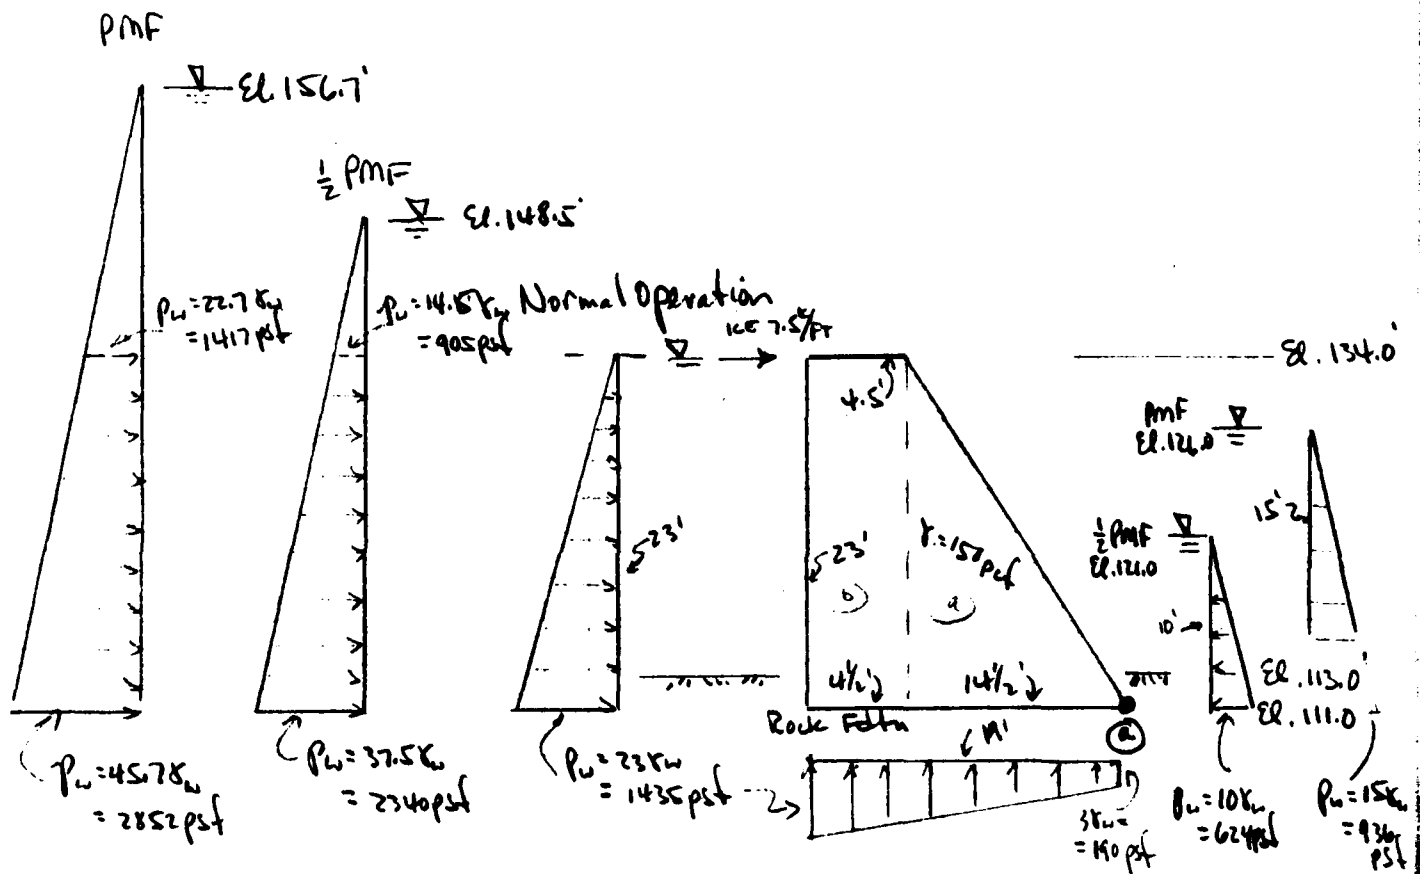 PMF
El. 156.7'
½ PMF
El. 148.5'
Pw = 22.7 γw
= 1417 psf
Pw = 14.5 γw
= 905 psf
Normal Operation
ICE 7.5 k/FT
El. 134.0'
4.5'
PMF
El. 126.0
15'
23'
23'
γ = 150 pcf
½ PMF
El. 121.0
b
a
10'
4½'
14½'
El. 113.0'
El. 111.0
Rock Fdtn
19'
a
Pw = 45.7 γw
= 2852 psf
Pw = 37.5 γw
= 2340 psf
Pw = 23 γw
= 1435 psf
3 γw =
= 190 psf
Pw = 10 γw
= 624 psf
Pw = 15 γw
= 936
psf